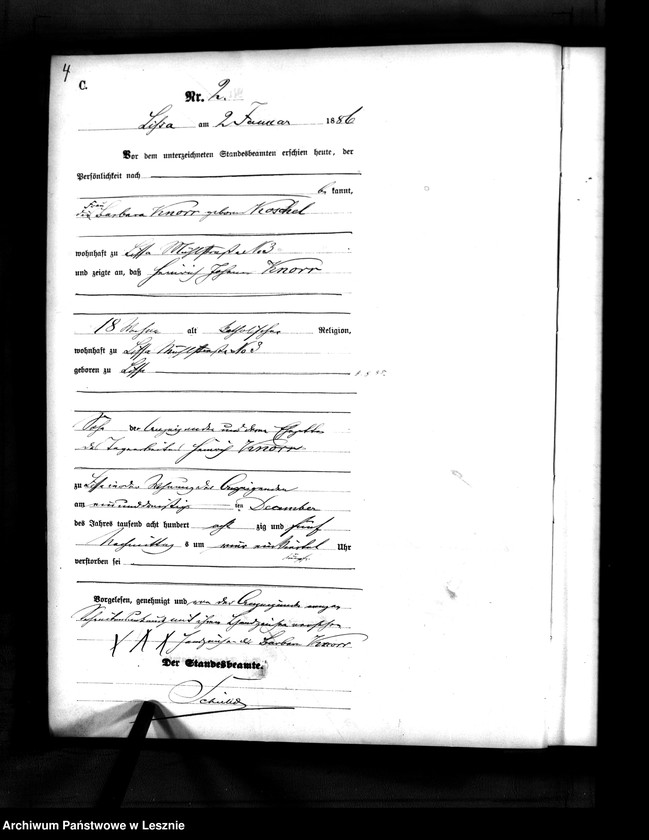 4
C.
Nr. 2.
Lissa am 2 Januar 1886
Vor dem unterzeichneten Standesbeamten erschien heute, der
Persönlichkeit nach
be kannt,
Frau
die Barbara Knorr geborne Koschel
wohnhaft zu Lissa Mühlstraße No 3
und zeigte an, daß Heinrich Johann Knorr
18 Wochen alt katholischer Religion,
wohnhaft zu Lissa Mühlstraße No 3
geboren zu Lissa
Sohn der Anzeigenden und deren Ehegatten
des Tagearbeiters Heinrich Knorr
zu Lissa in der Wohnung der Anzeigenden
am einunddreißig ten December
des Jahres tausend acht hundert acht zig und fünf
Nachmittag s um Uhr
verstorben sei
Vorgelesen, genehmigt und von der Anzeigenden wegen
Schreibensunkunde mit ihrem Handzeichen versehen
XXX Handzeichen der Barbara Knorr
Der Standesbeamte.
Archiwum Państwowe w Lesznie